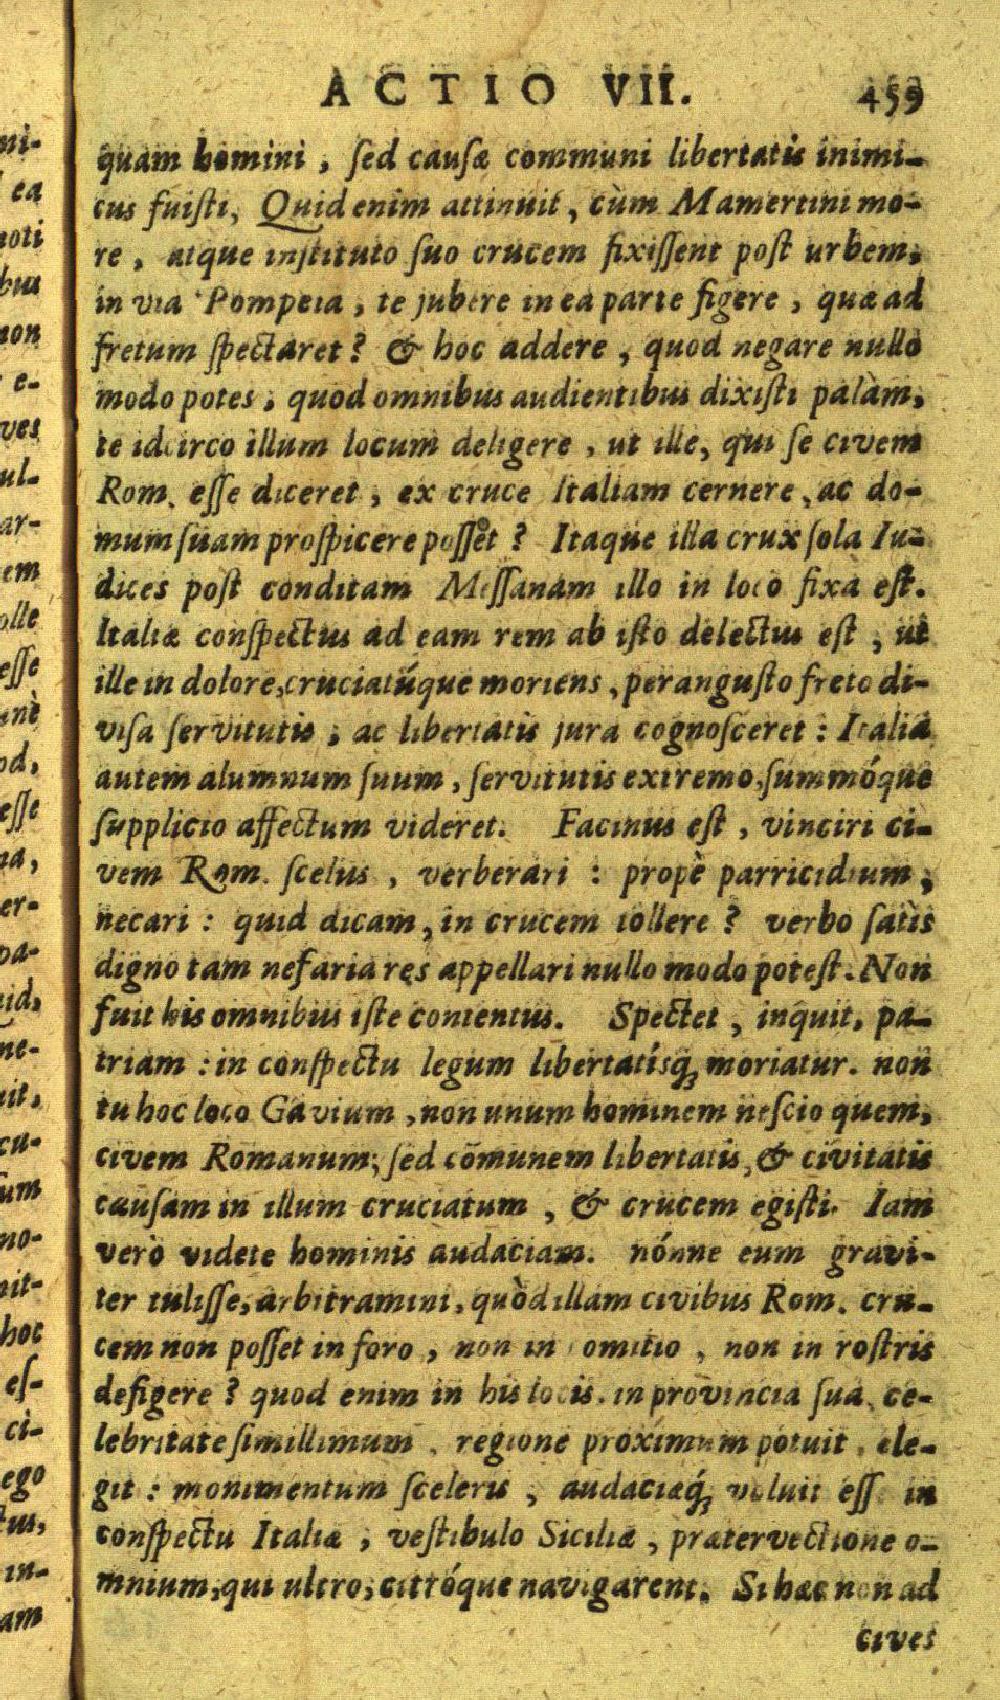 ACTIO VII. 459
quam homini, ſed cauſæ communi libertatis inimi-
cus fuiſti, Quid enim attinuit, cùm Mamertini mo-
re, atque inſtituto ſuo crucem fixiſſent poſt urbem,
in via Pompeia, te jubere in ea parte figere, quæ ad
fretum ſpectaret? & hoc addere, quod negare nullo
modo potes, quod omnibus audientibus dixiſti palàm,
te idcirco illum locum deligere, ut ille, qui ſe civem
Rom. eſſe diceret, ex cruce Italiam cernere, ac do-
mum ſuam proſpicere poſſet? Itaque illa crux ſola Iu-
dices poſt conditam Meſſanam illo in loco fixa eſt.
Italiæ conſpectus ad eam rem ab iſto delectus eſt, ut
ille in dolore, cruciatúque moriens, perangusto freto di-
viſa ſervitutis, ac libertatis jura cognoſceret: Italia
autem alumnum ſuum, ſervitutis extremo, ſummóque
ſupplicio affectum videret. Facinus eſt, vinciri ci-
vem Rom. ſcelus, verberari: propè parricidium,
necari: quid dicam, in crucem tollere? verbo ſatis
digno tam nefaria res appellari nullo modo poteſt. Non
fuit his omnibus iſte contentus. Spectet, inquit, pa-
triam: in conſpectu legum libertatísq; moriatur. non
tu hoc loco Gavium, non unum hominem neſcio quem,
civem Romanum; ſed cõmunem libertatis, & civitatis
cauſam in illum cruciatum, & crucem egiſti. Iam
verò videte hominis audaciam. nónne eum gravi-
ter tuliſſe, arbitramini, quòd illam civibus Rom. cru-
cem non poſſet in foro, non in comitio, non in roſtris
defigere? quod enim in his locis. in provincia ſua, ce-
lebritate ſimillimum, regione proximum potuit, ele-
git: monimentum ſceleris, audaciæq́; voluit eſſe in
conſpectu Italiæ, veſtibulo Siciliæ, prætervectione o-
mnium, qui ultro, cittóque navigarent. Si hæc non ad
cives
ni-
ea
noti
bus
non
e-
ves
ul-
ar-
em
olle
eſſe
anè
od,
eſſe
na,
er-
pa-
uid,
ne-
uit,
cu-
um
no-
nit-
hoc
eſ-
ci-
ego
tus,
in-
am